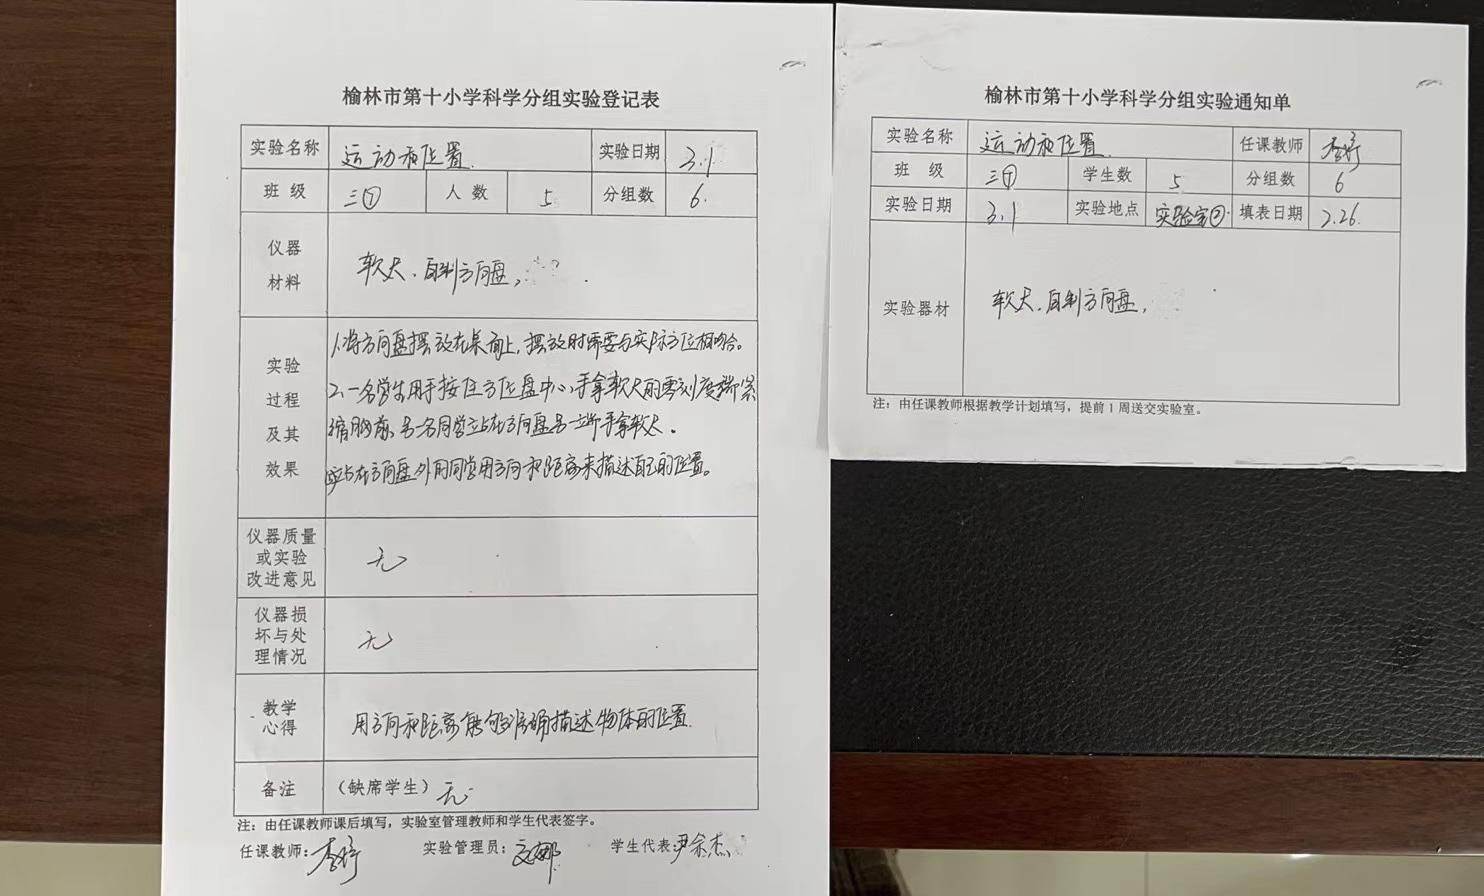 榆林市第十小学科学分组实验登记表
实验名称 运动和位置. 实验日期 3.1
班 级 三⑦ 人 数 5 分组数 6.
仪器
材料
软尺、自制方向盘,
实验
过程
及其
效果
1.将方向盘摆放在桌面上,摆放时需要与实际方位相吻合。
2.一名学生用手按住方位盘中心,手拿软尺的零刻度端紧
胸前,另一名同学站在方向盘另一端手拿软尺。
站在方向盘外的同学用方向和距离来描述自己的位置。
仪器质量
或实验
改进意见
无
仪器损
坏与处
理情况
无
教学
心得
用方向和距离能够准确描述物体的位置.
备注 (缺席学生) 无.
注:由任课教师课后填写,实验室管理教师和学生代表签字。
任课教师: 实验管理员: 学生代表:尹余杰
榆林市第十小学科学分组实验通知单
实验名称 运动和位置. 任课教师
班 级 三⑦ 学生数 5 分组数 6
实验日期 3.1 实验地点 实验室② 填表日期 2.26.
实验器材 软尺、自制方向盘,
注:由任课教师根据教学计划填写,提前1周送交实验室。